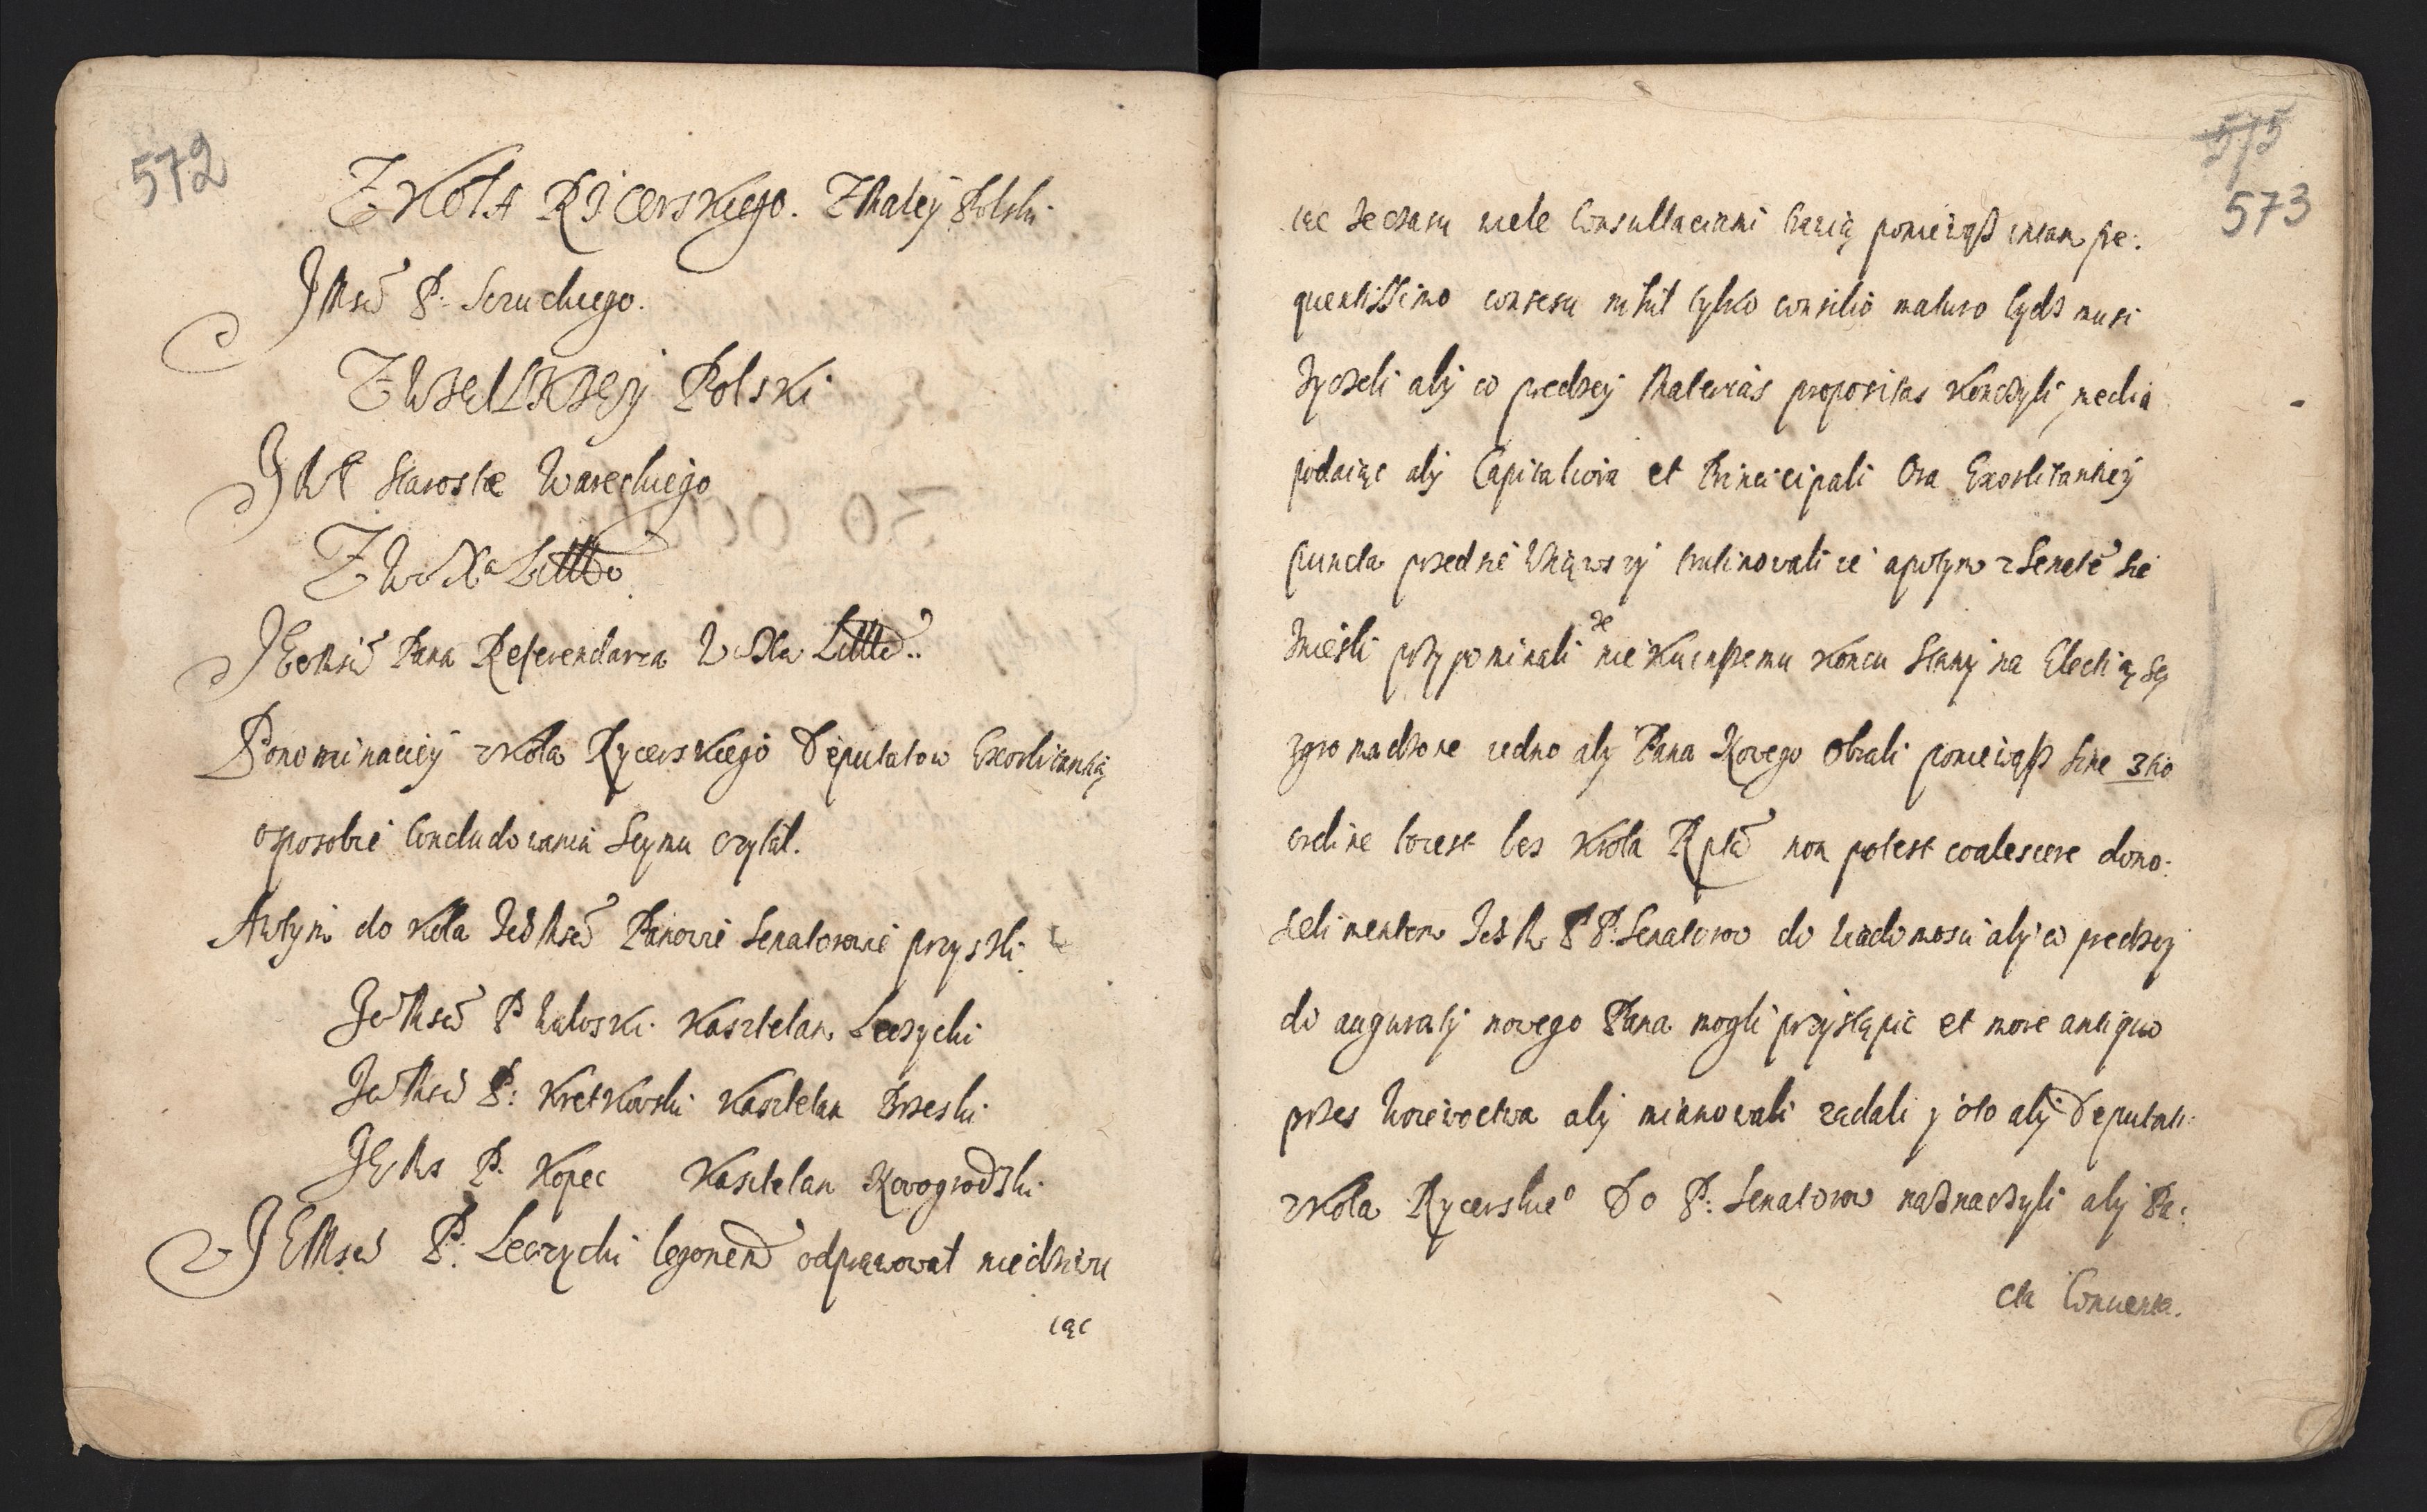 572
Z Kola Rycerskiego. Z Maley Polski.
JMsci P. Sczuckiego.
Z Wielkiey Polski
J M P Staroste Wareckiego
Z W. Xa Litto
JEoMsci Pana Referendarza W. Xa Litto.
Ponominaciey z Kola Rycerskiego Deputatow Exorbitantią
osposobie concludowania Seymu czytał.
Awtym do Kola Ich Msci Panowie Senatorowie przyszli.
Je Msci P Waloski Kasztelan Leczycki
Je Msci P: Kretkowski Kasztelan Brzeski
JEMs P. Kopec Kasztelan Nowogrodzki
JEMsci P. Leczycki odprawował niedziwu
iąc
575
573
iąc ze czasu wiele Consultaciami trawią poniewąsz in tam fre:
quentissimo consesu nihil tylko consilio maturo bydz musi
zyczeli aby co predzey Materias propositas konczyli, media
podaiąc aby Capitaliora et Principali ora Exorbitantiey
puncta przednie wziąwszy trutinowali ie apotym z Senatē sie
zniesli przypominali ze nie kuinszemu koncu Stany na Electią są
zgromadzone iedno aby Pana Nowego obrali poniewąsz sine 3tio
ordine to iest bes Krola Rplta non potest coalescere dono:
szeli mentem Ich M P P. Senatorow do wiadomosci aby co predzey
do auguraty nowego Pana mogli przystąpic et more antiquo
przes Woiewoctwa aby mianowali zadali y oto aby Deputati
z Kola Rycerskieo Do P: Senatorow naznaczyli aby Pa:
cta Conventa.